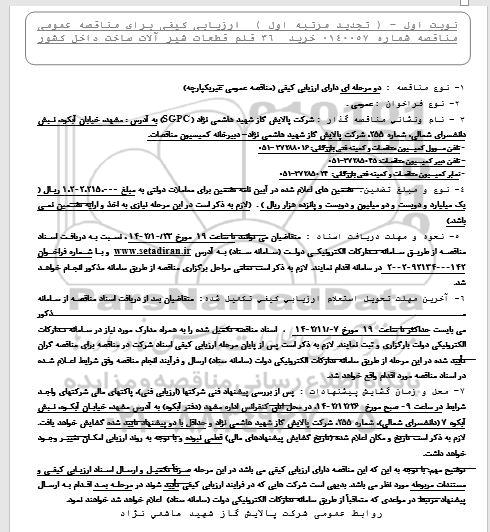 نوبت اول – ( تجدید مرتبه اول ) ارزیابی کیفی برای مناقصه عمومی
مناقصه شماره ۰۱۴۰۰۵۷ خرید ۳۶ قلم قطعات شیر آلات ساخت داخل کشور
۱- نوع مناقصه : دو مرحله ای دارای ارزیابی کیفی (مناقصه عمومی غیریکپارچه)
۲- نوع فراخوان : عمومی .
۳- نام ونشانی مناقصه گذار : شرکت پالایش گاز شهید هاشمی نژاد (SGPC) به آدرس : مشهد، خیابان آبکوه، نبش
دانشسرای شمالی، شماره ۲۵۵، شرکت پالایش گاز شهید هاشمی نژاد– دبیرخانه کمیسیون مناقصات.
- تلفن مسوول کمیسیون مناقصات و کمیته فنی بازرگانی: ۳۷۲۸۸۰۱۶-۰۵۱
- تلفن دبیر کمیسیون مناقصات: ۳۷۲۸۵۰۲۵-۰۵۱
- نمابر کمیسیون مناقصات و کمیته فنی بازرگانی:
۴- نوع و مبلغ تضمین: تضمین های اعلام شده در آیین نامه تضمین برای معاملات دولتی به مبلغ ریال (
یک میلیارد و دویست و دو میلیون و دویست و پانزده هزار ریال ) . (لازم به ذکر است در این مرحله نیازی به اخذ و ارایه تضمین نمی
باشد.)
۵- نحوه و مهلت دریافت اسناد : متقاضیان می توانند تا ساعت ۱۹ مورخ نسبت به دریافت اسناد
مناقصه از طریق سامانه تدارکات الکترونیکی دولت (سامانه ستاد) به آدرس www.setadiran.ir و با شماره فراخوان
در سامانه اقدام نمایند. لازم به ذکر است تمامی مراحل برگزاری مناقصه از طریق سامانه مذکور انجام خواهد
شد.
۶- آخرین مهلت تحویل استعلام ارزیابی کیفی تکمیل شده: متقاضیان بعد از دریافت اسناد مناقصه از سامانه
مذکور
می بایست حداکثر تا ساعت ۱۹ مورخ اسناد مناقصه تکمیل شده را به همراه مدارک مورد نیاز در سامانه تدارکات
الکترونیکی دولت بارگزاری و ثبت نمایند. لازم به ذکر است پس از پایان مرحله ارزیابی کیفی اسناد شرکت در مناقصه برای مناقصه گران
تأیید شده در این مرحله از طریق سامانه تدارکات الکترونیکی دولت (سامانه ستاد) ارسال و فرآیند انجام مناقصه وفق شرایط اعلام شده
در اسناد مناقصه مورد اقدام واقع خواهد شد.
۷- محل و زمان گشایش پیشنهادات : پس از بررسی پیشنهاد فنی شرکتها (ارزیابی فنی)، پاکتهای مالی شرکتهای واجد
شرایط در ساعت ۹ صبح مورخ در محل اتاق کنفرانس اداره مشهد (دفتر آبکوه) به آدرس مشهد، خیابان آبکوه، نبش
آبکوه ۷ (دانشسرای شمالی)، شماره ۲۵۵، شرکت پالایش گاز شهید هاشمی نژاد و حداقل با دو پیشنهاد تایید شده گشایش خواهد یافت.
لازم به ذکر است تاریخ و مکان اعلام شده (تاریخ گشایش پیشنهادهای مالی) قطعی نبوده و با توجه به روند ارزیابی امکان تغییر وجود
خواهد داشت.
توضیح مهم: با توجه به این که این مناقصه دارای ارزیابی کیفی می باشد در این مرحله صرفاً تکمیل و ارسال اسناد ارزیابی کیفی و
مستندات مربوطه مورد نظر می باشد. بدیهی است شرکت هایی که در فرایند ارزیابی کیفی تأیید شوند در مرحله بعد اقدام به ارسال
پیشنهاد مرتبط در مواعدی که متعاقباً از طریق سامانه تدارکات الکترونیک دولت (سامانه ستاد) اعلام خواهد شد خواهند نمود.
روابط عمومی شرکت پالایش گاز شهید هاشمی نژاد